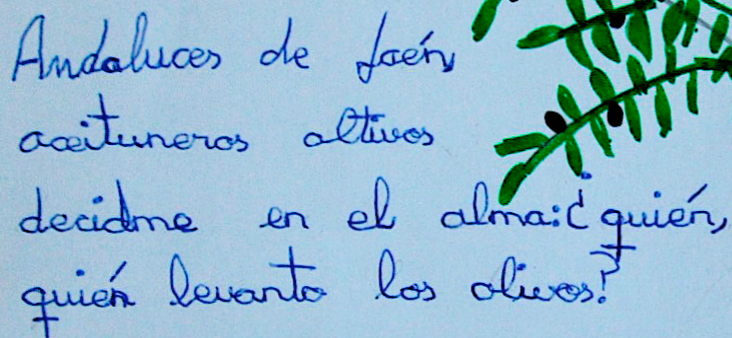 Andaluces de Jaén,
aceituneros altivos
decidme en el alma: ¿quién,
quién levanto los olivos?